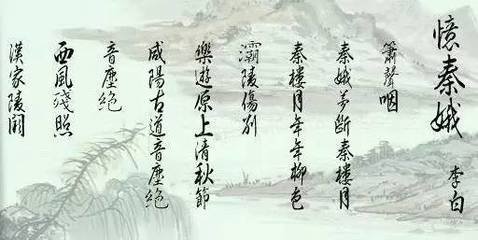 憶秦娥
李白
簫聲咽
秦娥夢斷秦樓月
秦樓月年年柳色
灞陵傷別
樂遊原上清秋節
咸陽古道音塵絕
音塵絕
西風殘照
漢家陵闕